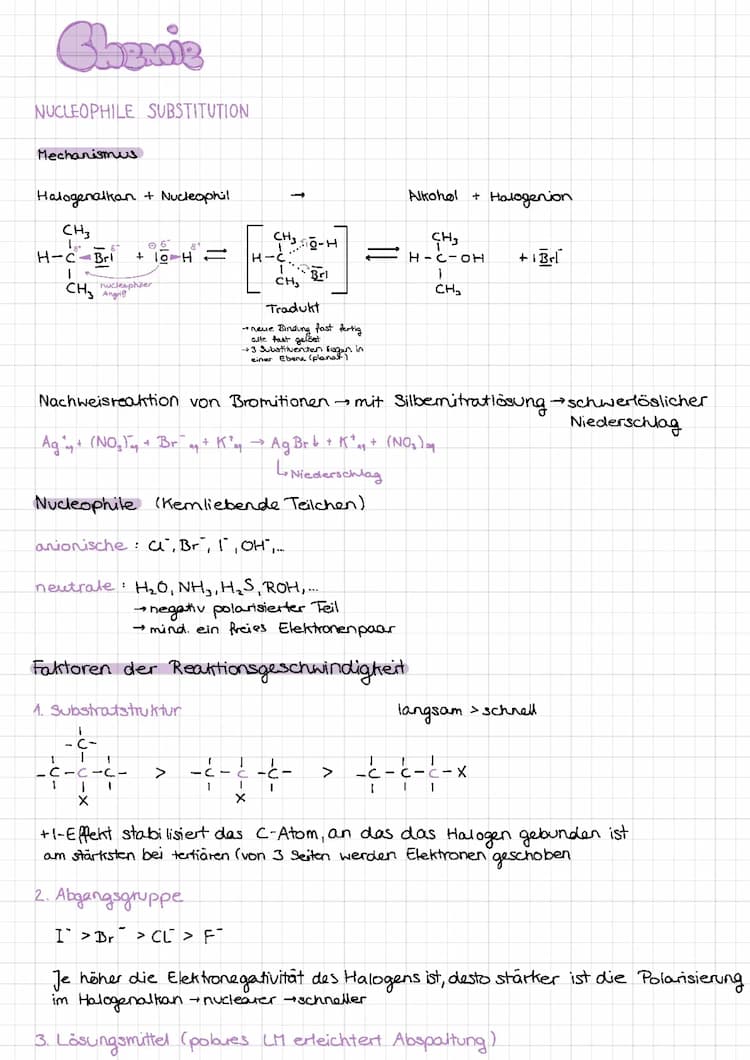 Chemie
NUCLEOPHILE SUBSTITUTION
Mechanismus
Halogenalkan + Nucleophil → Alkohol + Halogenion
CH₃ CH₃ CH₃
H-C-Br| + |O-H ⇌ [H-C O-H Br|] ⇌ H-C-OH + |Br|⁻
CH₃ nucleophiler Angriff CH₃ CH₃
Tradukt
→ neue Bindung fast fertig
alte fast gelöst
→ 3 Substituenten liegen in
einer Ebene (planar)
Nachweisreaktion von Bromitionen → mit Silbernitratlösung → schwerlöslicher
Niederschlag
Ag⁺aq + (NO₃)⁻aq + Br⁻aq + K⁺aq → AgBr↓ + K⁺aq + (NO₃)aq
↳ Niederschlag
Nucleophile (Kernliebende Teilchen)
anionische : Cl⁻, Br⁻, I⁻, OH⁻,...
neutrale : H₂O, NH₃, H₂S, ROH,...
→ negativ polarisierter Teil
→ mind. ein freies Elektronenpaar
Faktoren der Reaktionsgeschwindigkeit
1. Substratstruktur langsam > schnell
-C-
-C-C-C- > -C-C-C- > -C-C-C-X
X X
+I-Effekt stabilisiert das C-Atom, an das das Halogen gebunden ist
am stärksten bei tertiären (von 3 Seiten werden Elektronen geschoben
2. Abgangsgruppe
I⁻ > Br⁻ > CL⁻ > F⁻
Je höher die Elektronegativität des Halogens ist, desto stärker ist die Polarisierung
im Halogenalkan → nuclearer → schneller
3. Lösungsmittel (polares LM erleichtert Abspaltung)